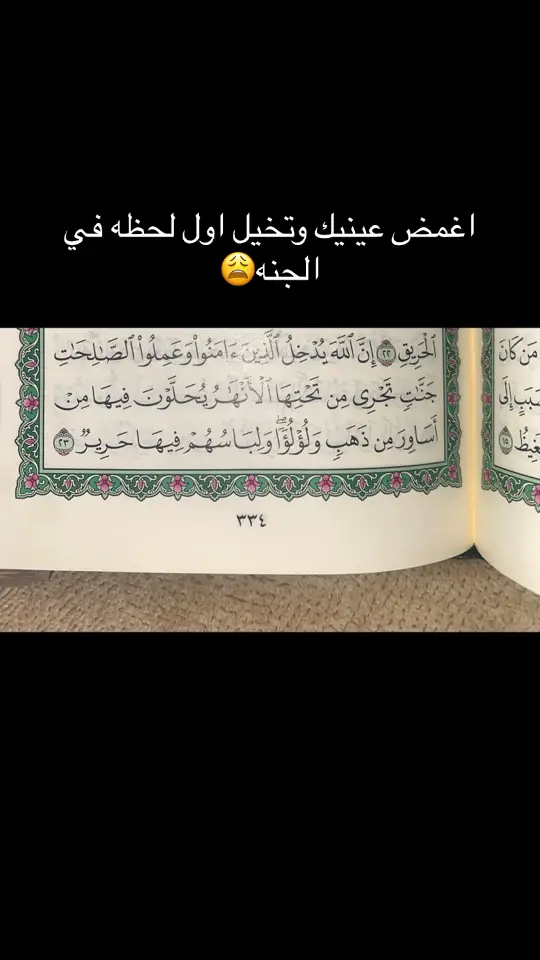 اغمض عينيك وتخيل اول لحظه في
الجنه😩
ٱلْحَرِيقِ ٢٢ إِنَّ ٱللَّهَ يُدْخِلُ ٱلَّذِينَ ءَامَنُوا۟ وَعَمِلُوا۟ ٱلصَّٰلِحَٰتِ
جَنَّٰتٍ تَجْرِى مِن تَحْتِهَا ٱلْأَنْهَٰرُ يُحَلَّوْنَ فِيهَا مِنْ
أَسَاوِرَ مِن ذَهَبٍ وَلُؤْلُؤًا ۖ وَلِبَاسُهُمْ فِيهَا حَرِيرٌ ٢٣
٣٣٤
مَن كَانَ
بِسَبَبٍ إِلَى
يَغِيظُ ١٥